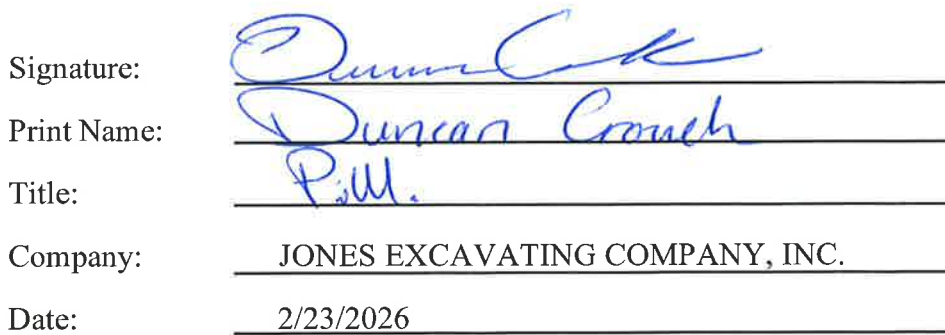 Signature:
Print Name: Duncan Crouch
Title: P.M.
Company: JONES EXCAVATING COMPANY, INC.
Date: 2/23/2026